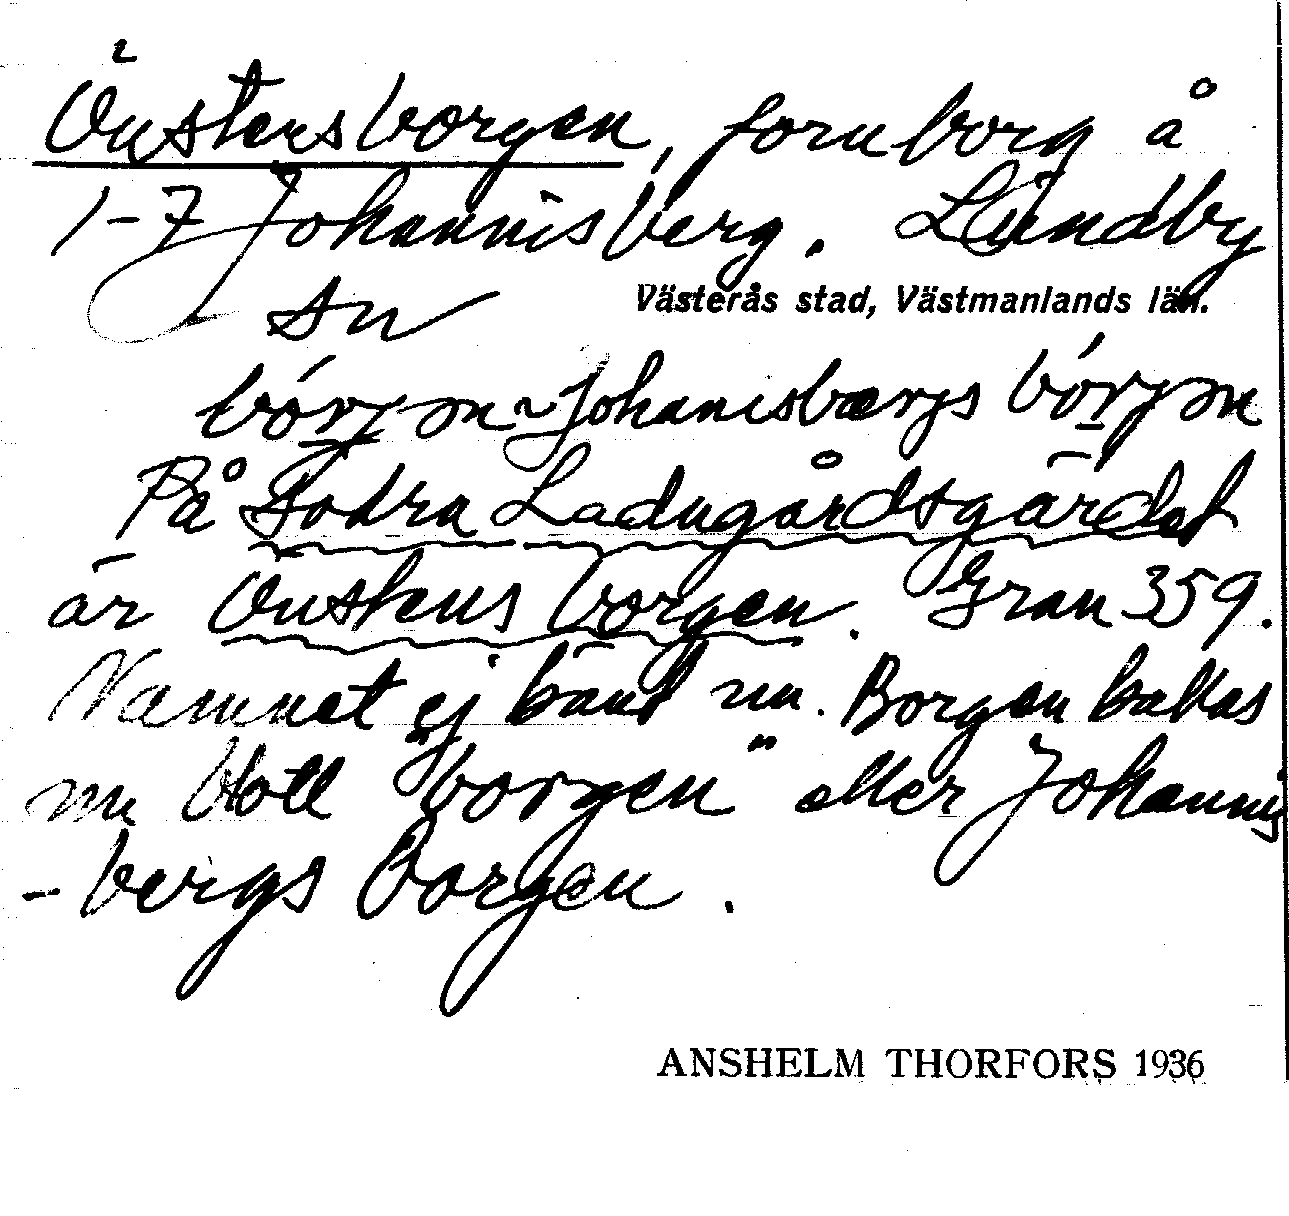 2
Önstensborgen, fornborg å
1-7 Johannisberg. Lundby
sn
Västerås stad, Västmanlands län.
bórjɲ ~ Johanisbærjs bórjɲ
På Södra Ladugårdsgärdet
är Önstens borgen. Gran 359.
Namnet ej känt nu. Borgen kallas
nu blott "borgen" eller Johannis
-bergs borgen.
ANSHELM THORFORS 1936